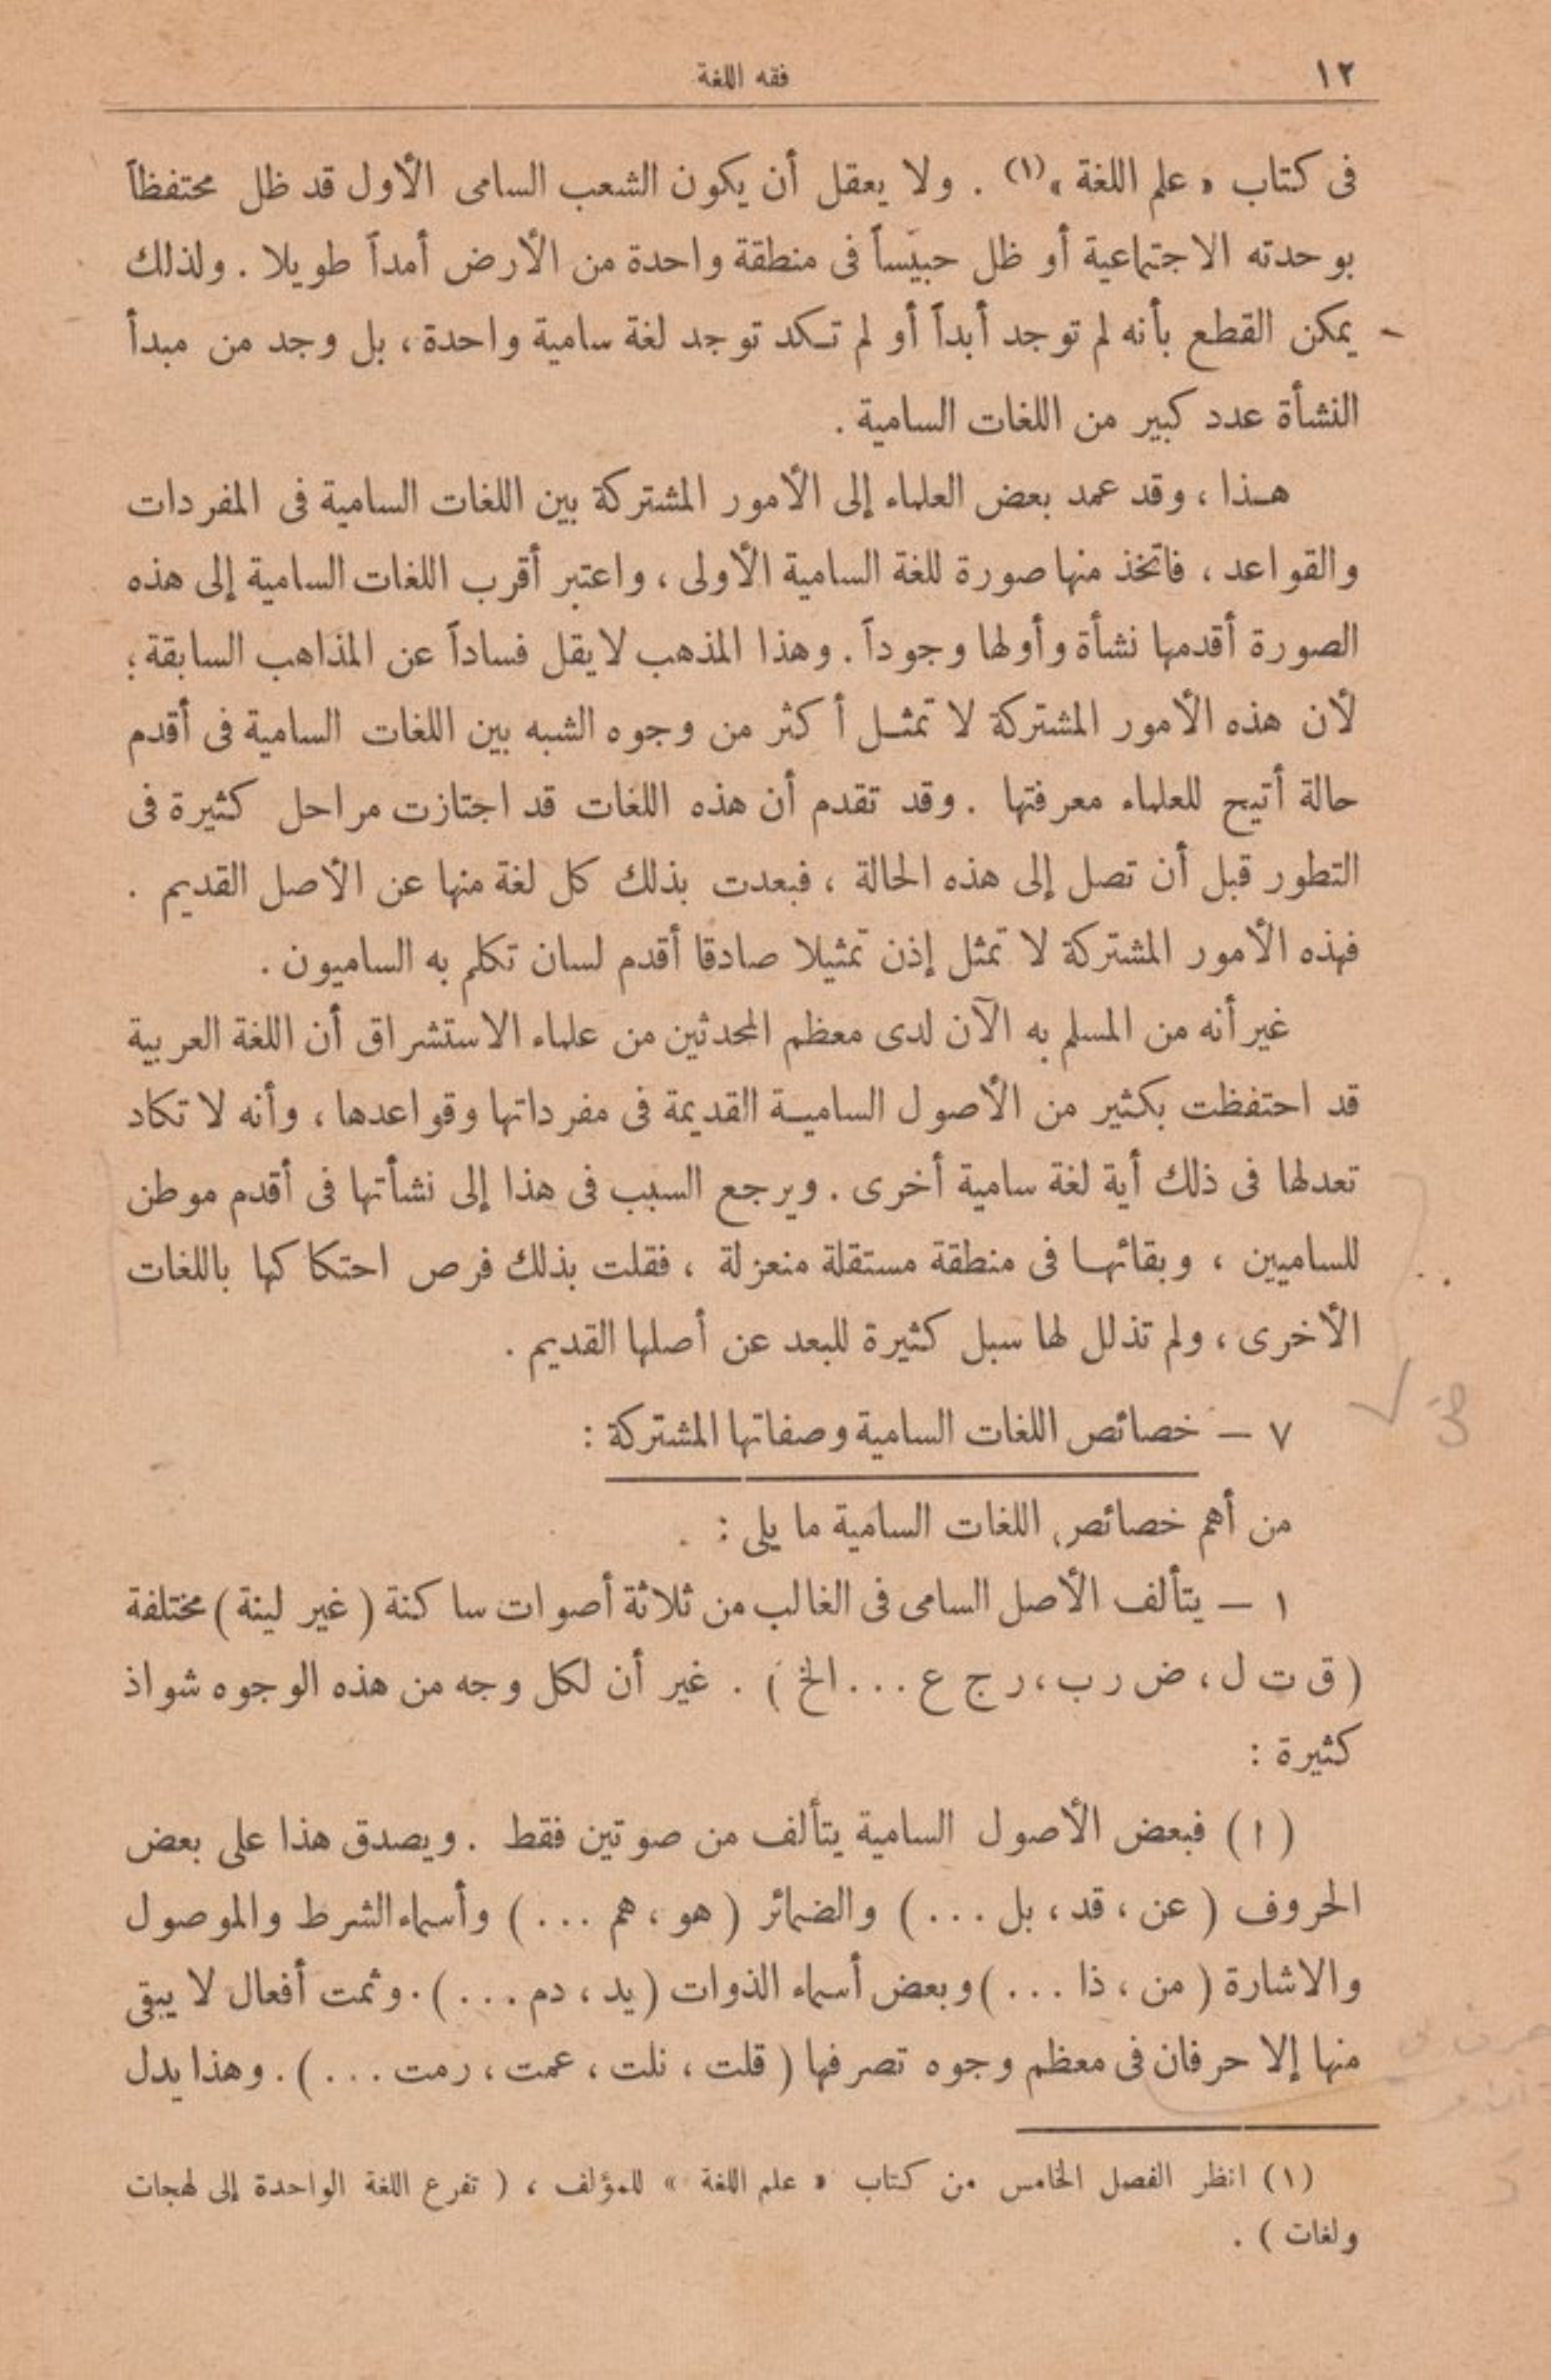 ١٢
فقه اللغة
فى كتاب « علم اللغة »(١) . ولا يعقل أن يكون الشعب السامى الأول قد ظل محتفظاً
بوحدته الاجتماعية أو ظل حبيساً فى منطقة واحدة من الأرض أمداً طويلا . ولذلك
يمكن القطع بأنه لم توجد أبداً أو لم تكد توجد لغة سامية واحدة ، بل وجد من مبدأ
النشأة عدد كبير من اللغات السامية .
هذا ، وقد عمد بعض العلماء إلى الأمور المشتركة بين اللغات السامية فى المفردات
والقواعد ، فاتخذ منها صورة للغة السامية الأولى ، واعتبر أقرب اللغات السامية إلى هذه
الصورة أقدمها نشأة وأولها وجوداً . وهذا المذهب لا يقل فساداً عن المذاهب السابقة ؛
لأن هذه الأمور المشتركة لا تمثل أكثر من وجوه الشبه بين اللغات السامية فى أقدم
حالة أتيح للعلماء معرفتها . وقد تقدم أن هذه اللغات قد اجتازت مراحل كثيرة فى
التطور قبل أن تصل إلى هذه الحالة ، فبعدت بذلك كل لغة منها عن الأصل القديم .
فهذه الأمور المشتركة لا تمثل إذن تمثيلا صادقا أقدم لسان تكلم به الساميون .
غير أنه من المسلم به الآن لدى معظم المحدثين من علماء الاستشراق أن اللغة العربية
قد احتفظت بكثير من الأصول السامية القديمة فى مفرداتها وقواعدها ، وأنه لا تكاد
تعدلها فى ذلك أية لغة سامية أخرى . ويرجع السبب فى هذا إلى نشأتها فى أقدم موطن
للساميين ، وبقائها فى منطقة مستقلة منعزلة ، فقلت بذلك فرص احتكاكها باللغات
الأخرى ، ولم تذلل لها سبل كثيرة للبعد عن أصلها القديم .
٧ — خصائص اللغات السامية وصفاتها المشتركة :
من أهم خصائص اللغات السامية ما يلى :
١ — يتألف الأصل السامى فى الغالب من ثلاثة أصوات ساكنة ( غير لينة ) مختلفة
( ق ت ل ، ض ر ب ، ر ج ع ... الخ ) . غير أن لكل وجه من هذه الوجوه شواذ
كثيرة :
( ا ) فبعض الأصول السامية يتألف من صوتين فقط . ويصدق هذا على بعض
الحروف ( عن ، قد ، بل ... ) والضمائر ( هو ، هم ... ) وأسماء الشرط والموصول
والاشارة ( من ، ذا ... ) وبعض أسماء الذوات ( يد ، دم ... ) . وثمت أفعال لا يبقى
منها إلا حرفان فى معظم وجوه تصرفها ( قلت ، نلت ، عمت ، رمت ... ) . وهذا يدل
(١) انظر الفصل الخامس من كتاب « علم اللغة » للمؤلف ، ( تفرع اللغة الواحدة إلى لهجات
ولغات ) .